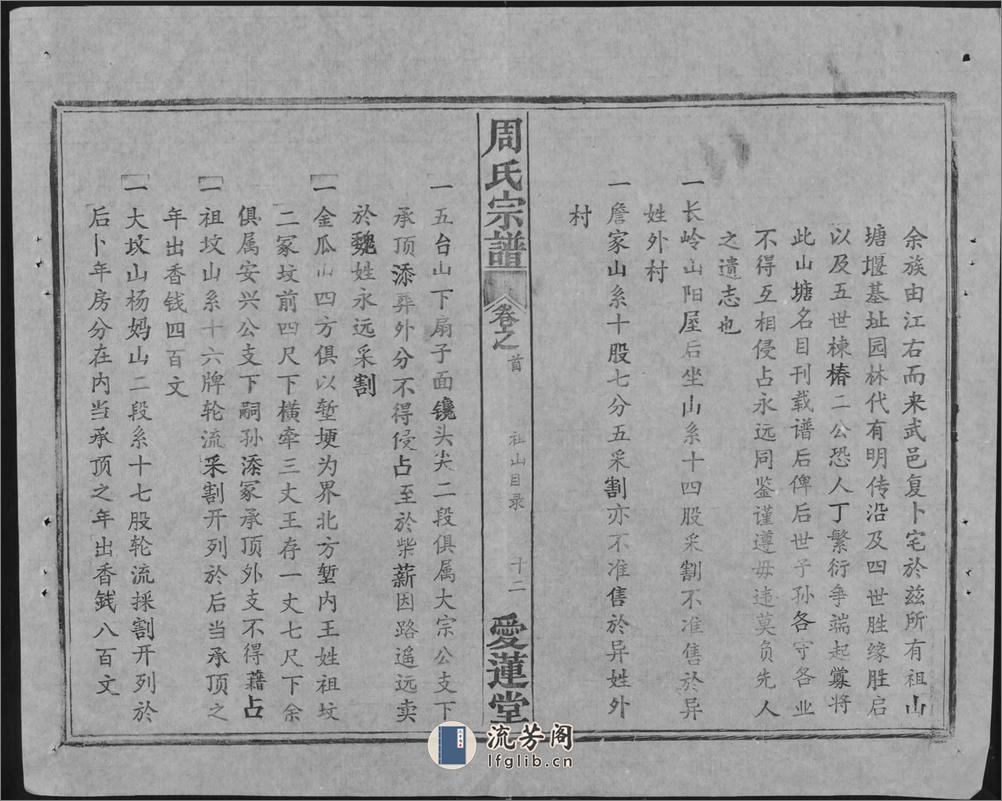 余族由江右而来武邑复卜宅於兹所有祖山
塘堰基址园林代有明传沿及四世胜缘胜启
以及五世栋椿二公恐人丁繁衍争端起衅将
此山塘名目刊载谱后俾后世子孙各守各业
不得互相侵占永远同鉴谨遵毋违莫负先人
之遗志也
一长岭山阳屋后坐山系十四股采割不准售於异
姓外村
一詹家山系十股七分五采割亦不准售於异姓外
村
周氏宗譜
卷之首
祖山目录
十二
愛蓮堂
一五台山下扇子面镜头尖二段俱属大宗公支下
承顶添葬外分不得侵占至於柴薪因路遥远卖
於魏姓永远采割
一金瓜山四方俱以堑埂为界北方堑内王姓祖坟
二冢坟前四尺下横牵三丈王存一丈七尺下余
俱属安兴公支下嗣孙添冢承顶外支不得藉占
一祖坟山系十六牌轮流采割开列於后当承顶之
年出香钱四百文
一大坟山杨妈山二段系十七股轮流採割开列於
后卜年房分在内当承顶之年出香銭八百文
流芳阁
lfglib.cn